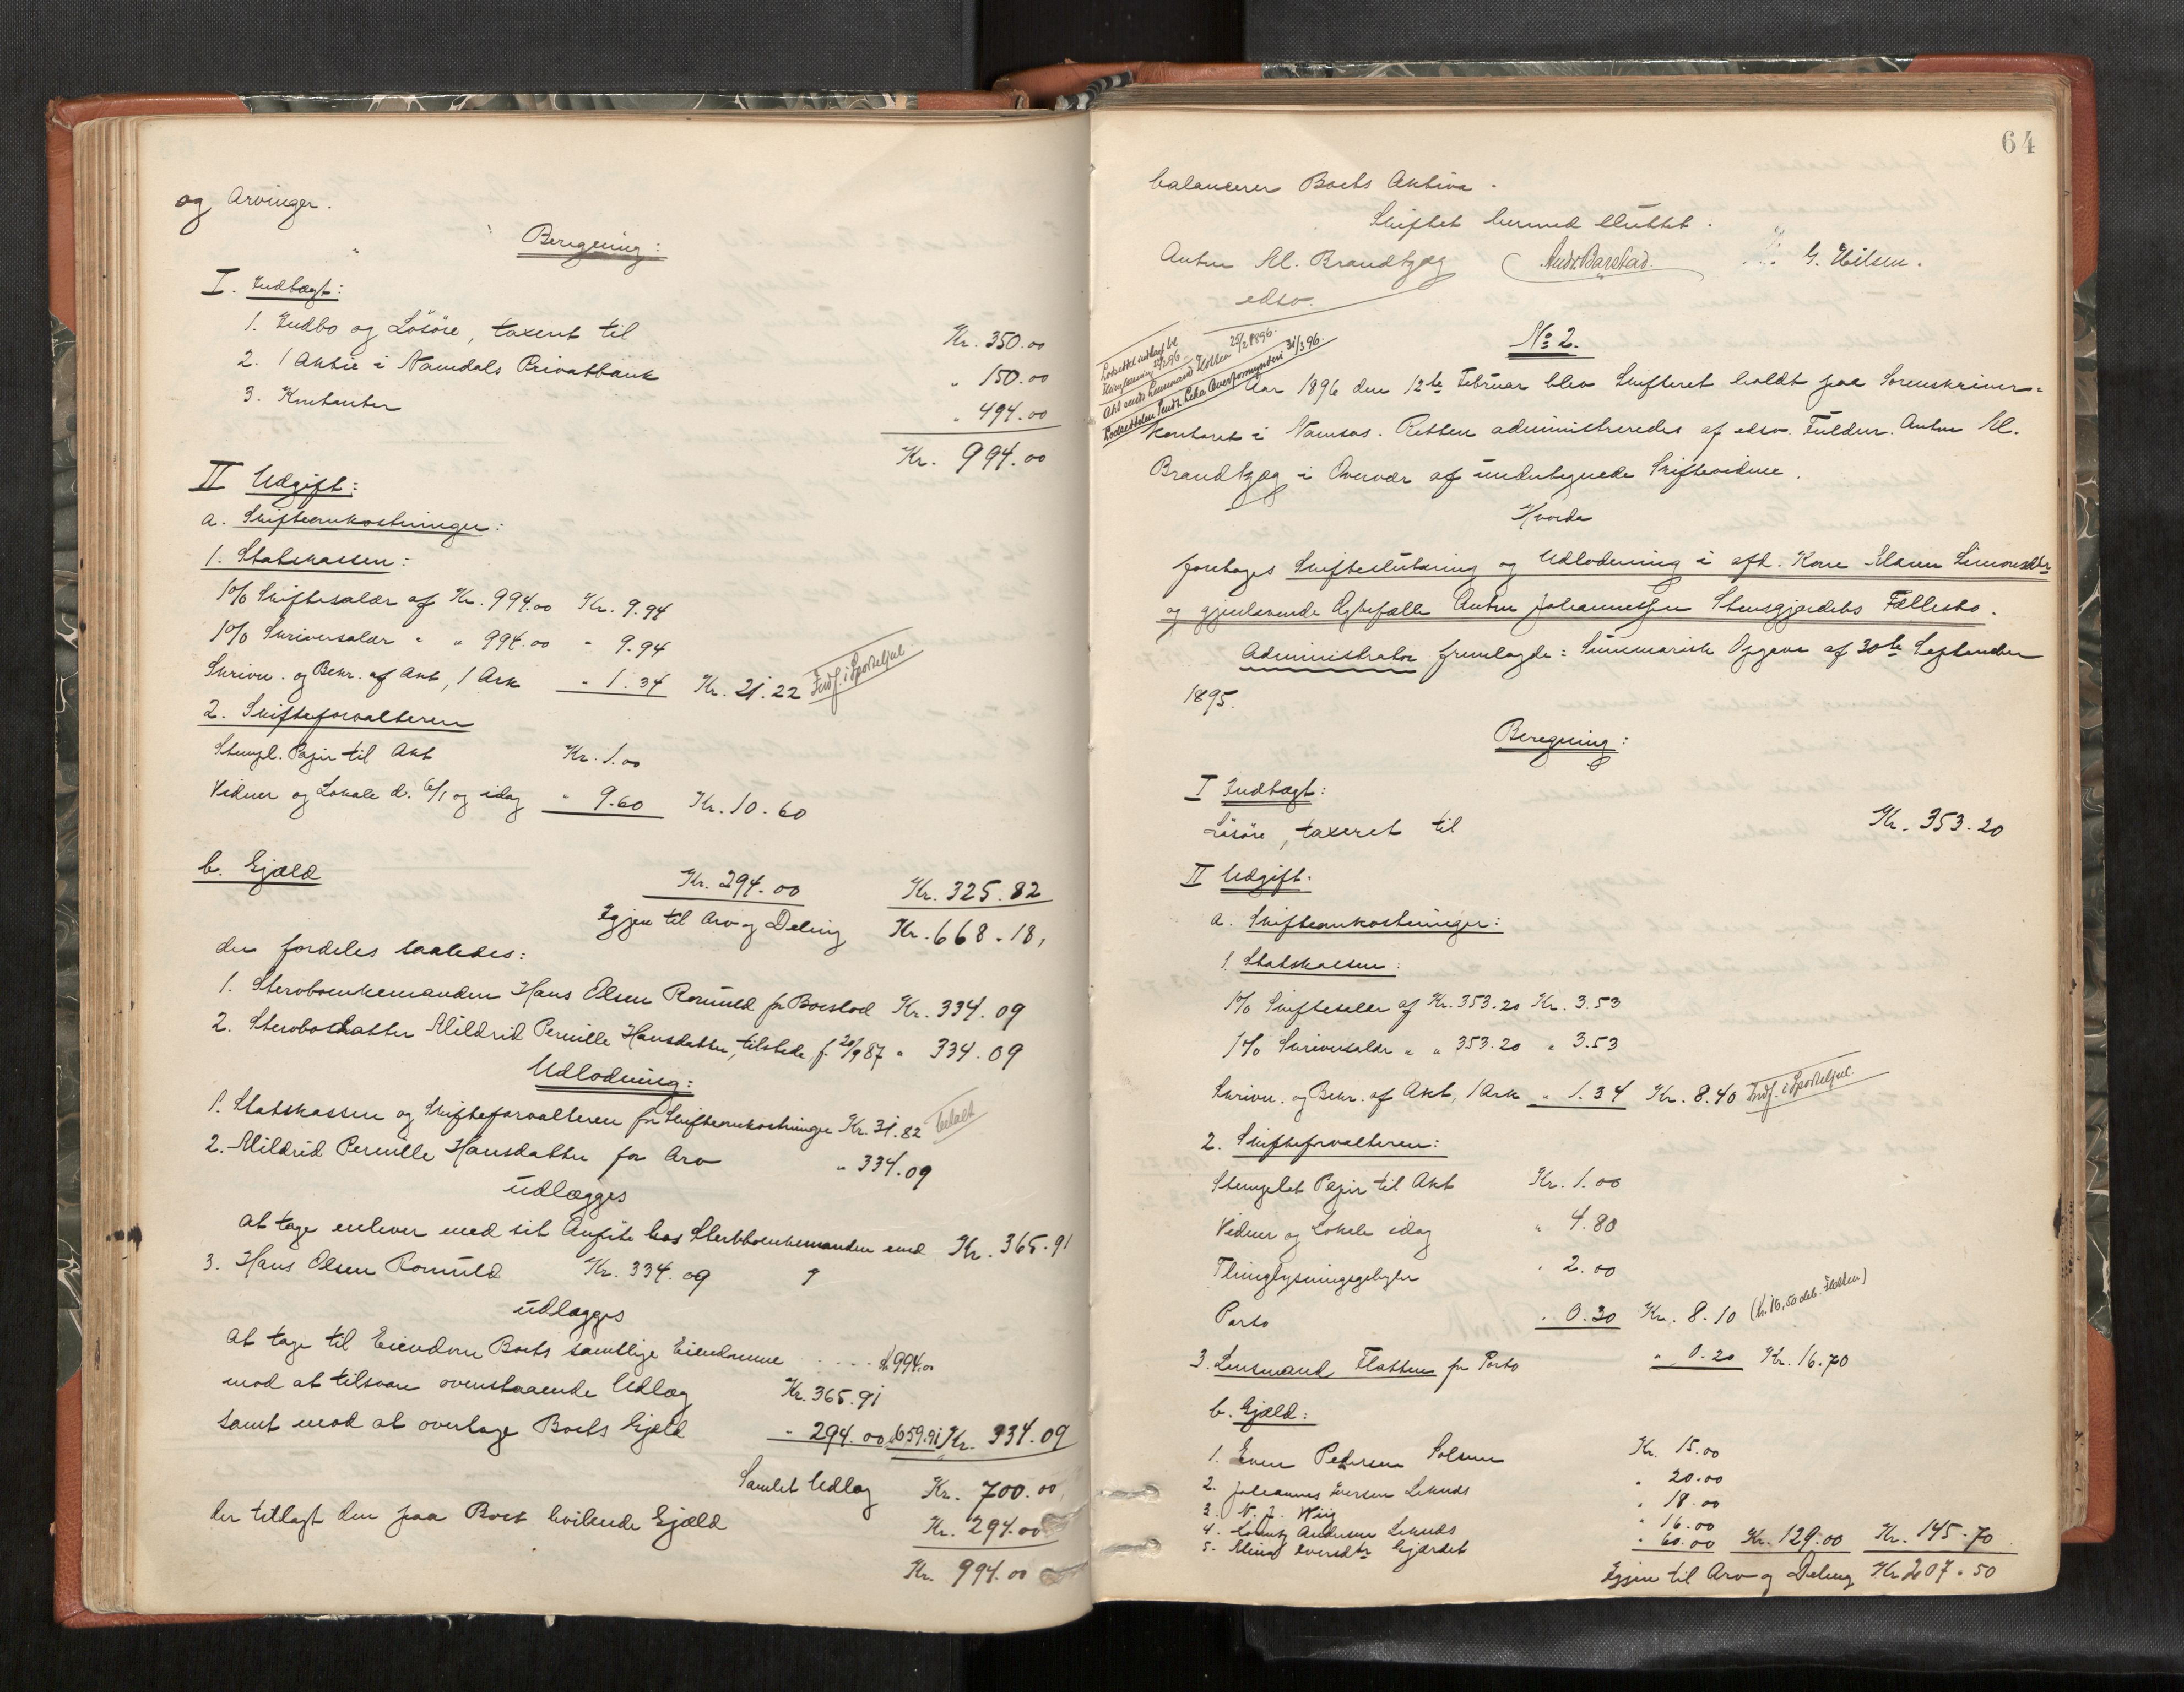 og Arvinger.
Beregning:
I. Indtægt:
1. Indbo og Lösöre, taxeret til Kr. 350.00
2. 1 Aktie i Namdals Privatbank " 150.00
3. Kontanter " 494.00
Kr. 994.00
II Udgift:
a. Skifteomkostninger:
1. Statskassen:
1% Skiftesalær af Kr. 994.00 Kr. 9.94
1% Skriversalær " " 994.00 " 9.94
Skrivn. og Bekr. af Akt, 1 Ark " 1.34 Kr. 21.22 Indf. i Sporteljnl.
2. Skifteforvalteren
Stempl. Papir til Akt Kr. 1.00
Vidner og Lokale d. 6/1 og idag " 9.60 Kr. 10.60
b. Gjæld Kr. 294.00 Kr. 325.82
Igjen til Arv og Deling Kr. 668.18,
der fordeles saaledes:
1. Stervboenkemanden Hans Olsen Romuld for Boeslod Kr. 334.09
2. Stervbodatter Mildrid Pernille Hansdatter, tilstede, f. 20/9 87 " 334.09
Udlodning:
1. Statskassen og Skifteforvalteren for Skifteomkostninger Kr. 31.82 betalt
2. Mildrid Pernille Hansdatter for Arv " 334.09
udlægges
at tage enhver med sit Anpite hos Stervboenkemanden med Kr. 365.91
3. Hans Olsen Romuld Kr. 334.09
udlægges
at tage til Eiendom Boets samtlige Eiendomme .... Kr. 994.00
mod at tilsvare ovenstaaende Udlæg Kr. 365.91
samt mod at overtage Boets Gjæld " 294.00 659.91 Kr. 334.09
Samlet Udlæg Kr. 700.00
der tillagt den paa Boet hvilende Gjæld Kr. 294.00
Kr. 994.00
64
balancerer Boets Aktiva.
Skiftet hermed sluttet.
Anton M. Brandtzæg Andr. Barstad G. Nilsen.
edsv.
No 2.
Aar 1896 den 12te Februar blev Skifteret holdt paa Sorenskriver-
kontoret i Namsos. Retten administreredes af edsv. Fuldm. Anton M.
Brandtzæg i Overvær af undertegnede Skiftevidner.
Hvorda
foretoges Skifteslutning og Udlodning i afd. Kone Maren Simonsdtr
og gjenlevende Ægtefælle Anton Johannessen Stensgjerdets Fællesbo.
Administrator fremlagde: Summarisk Opgave af 30te September
1895.
Beregning:
I Indtægt:
Lösöre, taxeret til Kr. 353.20
II Udgift:
a. Skifteomkostninger:
1. Statskassen:
1% Skiftesalær af Kr. 353.20 Kr. 3.53
1% Skriversalær " " 353.20 " 3.53
Skrivn. og Bekr. af Akt, 1 Ark " 1.34 Kr. 8.40 Indf. i Sporteljnl.
2. Skifteforvalteren:
Stemplet Papir til Akt Kr. 1.00
Vidner og Lokale idag " 4.80
Thinglysningsgebyhr " 2.00
Porto " 0.30 Kr. 8.10 (Kr. 16,50 deb. Flotten)
3. Lensmand Flotten for Porto " 0.20 Kr. 16.70
b. Gjæld:
1. Even Pedersen Solum Kr. 15.00
2. Johannes Iversen Leknds " 20.00
3. N. J. Wiig " 18.00
4. Andersen Leknds " 16.00
5. Iversdtr Gjærdet " 60.00 Kr. 129.00 Kr. 145.70
Igjen til Arv og Deling Kr. 207.50